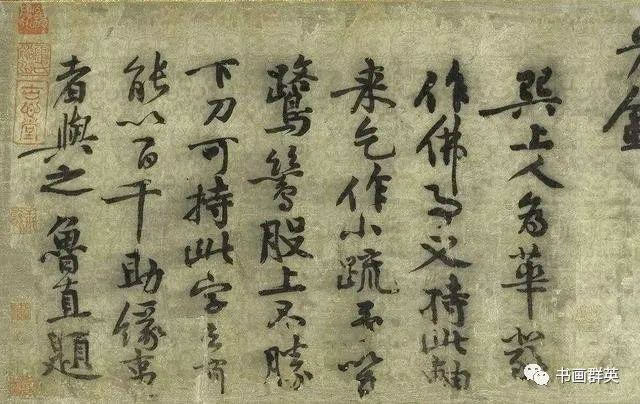 巽上人為華嚴
作佛事又持此軸
来乞作小疏
鷺鷥股上不勝
下刀可持此字
能以百千助緣
者與之魯直題
书画群英